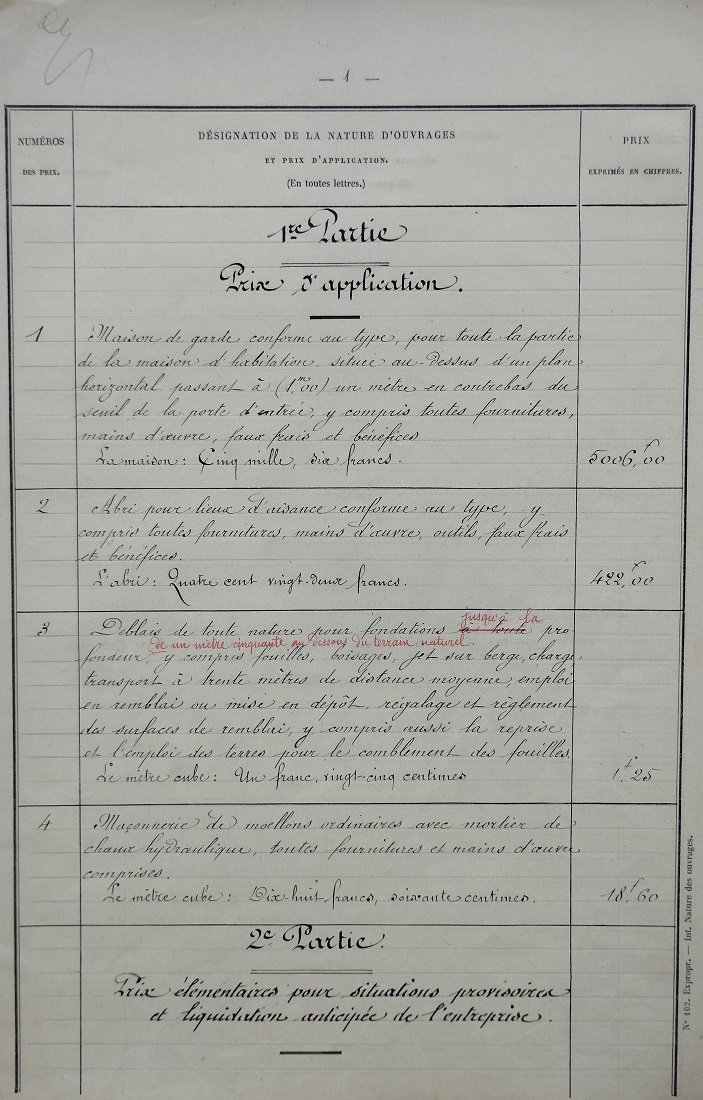 — 1 —
NUMÉROS
DES PRIX.
DÉSIGNATION DE LA NATURE D'OUVRAGES
ET PRIX D'APPLICATION.
(En toutes lettres.)
PRIX
EXPRIMÉS EN CHIFFRES.
1re Partie
Prix d'application.
1 Maison de garde conforme au type, pour toute la partie
de la maison d'habitation, située au-dessus d'un plan
horizontal passant à (1,m00) un mètre en contrebas du
seuil de la porte d'entrée, y compris toutes fournitures,
mains d'œuvre, faux frais et bénéfices
La maison : Cinq mille, six francs. 5006,f00
2 Abri pour lieux d'aisance conforme au type, y
compris toutes fournitures, mains d'œuvre, outils, faux frais
et bénéfices.
L'abri : Quatre cent vingt-deux francs. 422,f00
jusqu'à la
3 Déblais de toute nature pour fondations à toute pro
de un mètre cinquante au dessous du terrain naturel.
fondeur, y compris fouilles, boisages, jet sur berge, charge,
transport à trente mètres de distance moyenne, emploi
en remblai ou mise en dépôt, régalage et règlement
des surfaces de remblai, y compris aussi la reprise
et l'emploi des terres pour le comblement des fouilles.
Le mètre cube : Un franc, vingt-cinq centimes 1,f25
4 Maçonnerie de moellons ordinaires avec mortier de
chaux hydraulique, toutes fournitures et mains d'œuvre
comprises.
Le mètre cube : Dix huit francs, soixante centimes. 18,f60
2e Partie.
Prix élémentaires pour situations provisoires
et liquidation anticipée de l'entreprise.
N° 102. Expropr. — Int. Nature des ouvrages.